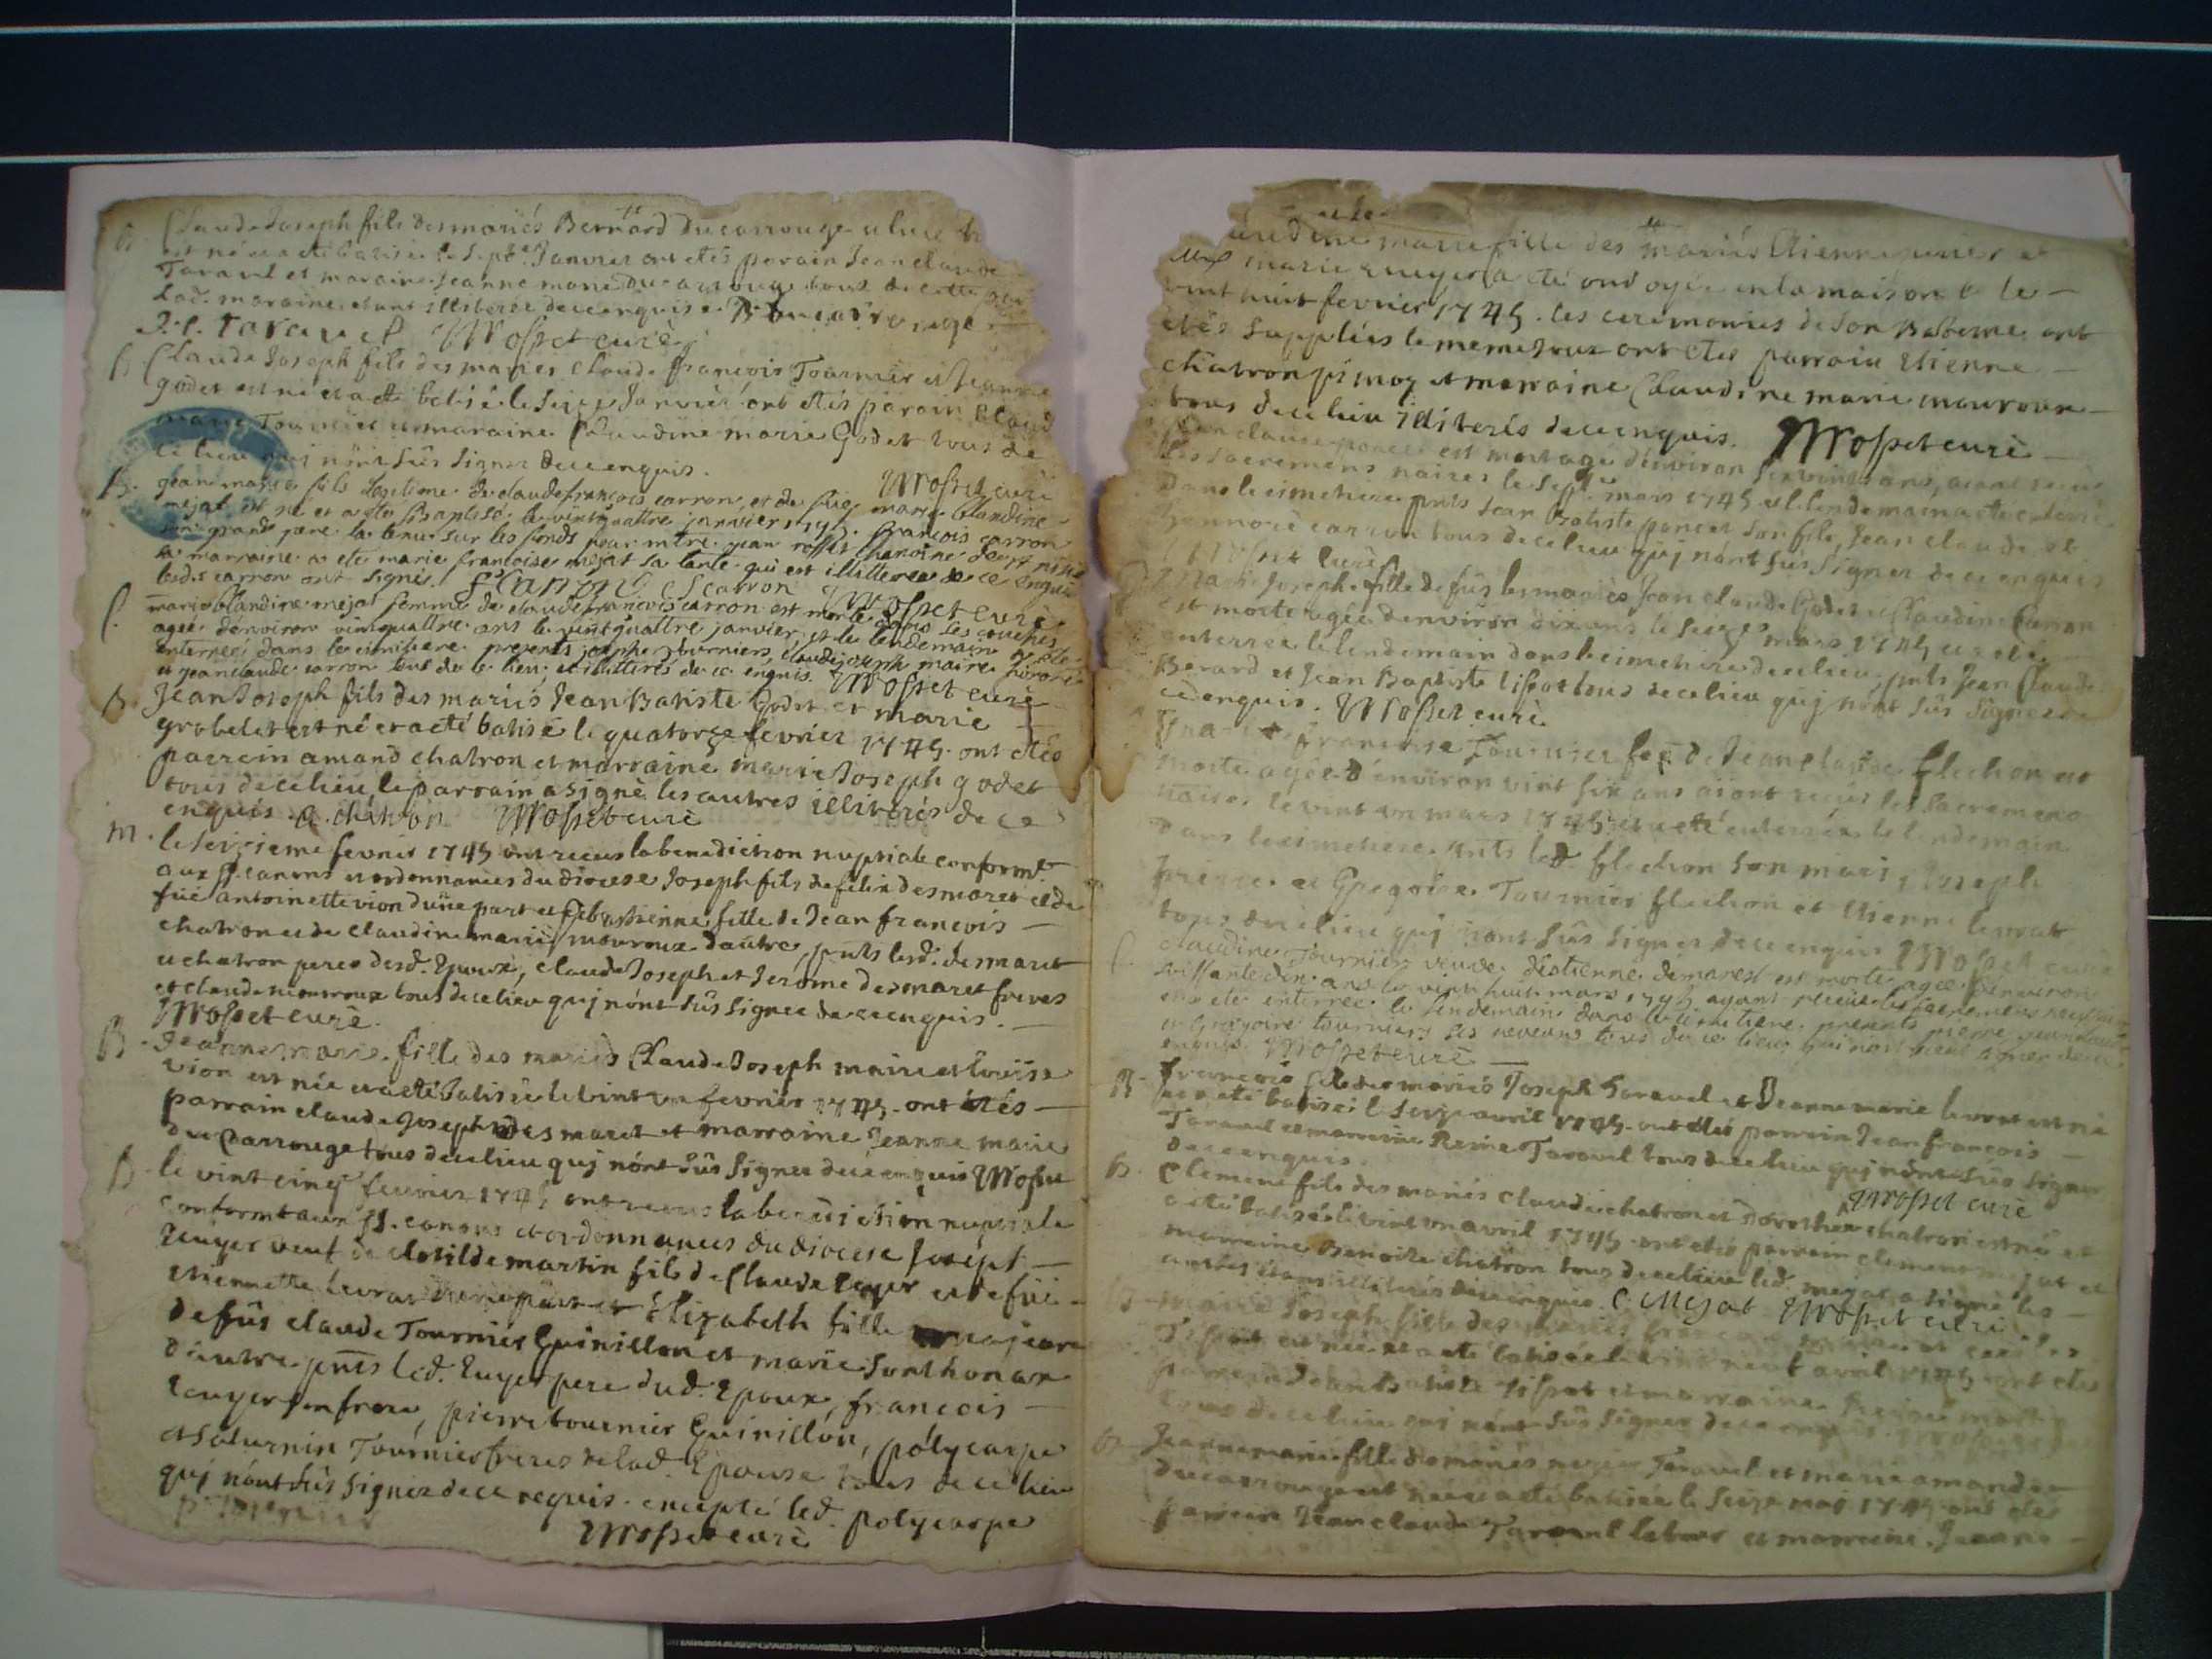 Claude Joseph fils des mariés Bernard Ducarrouge et luce
est né et a eté batisé le sept janvier ont etés parain Jean claude
Taravel et maraine Jeanne marie Ducarrouge tous de cette par
lad. maraine etant illiterée de ce enquise. B Ducarrouge
J. C. taravel Mosset curè
Claude Joseph fils des mariés Claude françois Tournier et Jeanne
godet est né et a eté batisé le seize Janvier ont etés parain Claud
marie Tournier et maraine Claudine marie Godet tous de
ce lieu quj n'ont sûs signer de ce enquis.
Mosset curè
B. jean marie fils legitime de claude françois carron, et de füe marie Clandine
mejat, est né et a eté Baptisé le vintquattre janvier 1745. françois carron
son grand pere la tenu sur les fonds pour mtre jean rosset chanoine de
la marraine a eté marie françoise mejat sa tante qui est illitteree de ce enquise
lesdts carron ont signés. f Caron C f carron Mosset curè
marie Clandine mejat femme de claude françois carron est morte dans ses couches
agée d'environ vintquattre ans le vintquattre janvier, et le lendemain a eté
enterrée dans le cimitiere. presents joseph tourniers, claude joseph maire, honoré
et jean claude carron tous de ce lieu, et illitterés de ce enquis. Mosset curè
B. Jean Joseph fils des mariés Jean Batiste Godet et marie
grobelet est né et a eté batisé le quatorze fevrier 1745. ont etés
parrein amand chatron et marraine marie Joseph godet
tous de ce lieu, le parrain a signè les autres illiterés de ce
enquis. a. chatron Mosset curè
m. le seizieme fevrier 1745 ont recus la benediction nuptiale conformt
aux st. canons et ordonnances du diocese Joseph fils de felix desmaret et de
füe antoinette vion d'une part et Sebastienne fille de Jean françois
chatron et de claudine marie mouroux d'autre, pnts lesd. desmaret
et chatron peres desd. Epoux, Claude Joseph et Jerome desmaret freres
et claude mouroux tous de ce lieu quj n'ont sûs signer de ce enquis.
Mosset curè.
B. Jeanne marie fille des mariés Claude Joseph maire et louise
vion est née et a eté batisée le vint un fevrier 1745. ont etés
parrain claude Joseph desmaret et marraine Jeanne marie
du Carrouge tous de ce lieu quj n'ont sûs signer de ce enquis Mosset
B. le vint cinq fevrier 1745 ont recus la benediction nuptiale
conformt aux st. canons et ordonnances du diocese Josept
reuyer veuf de clotilde martin fils de Claude reuyer et de füe
etiennette levrat d'une part et Elizabeth fille majeure
de fûs claude Tournier Guinillon et marie sonthonax
d'autre pnts led. Euyer pere dud. Epoux, françois
reuyer son frere, pierre tournier Guinillon, polycarpe
et saturnin Tournier freres de lad. Epouse tous de ce lieu
quj n'ont sûs signer de ce requis. excepté led. polycarpe
Mosset curè
Claudine marie fille des mariés Etienne perrier et
marie reuyer a eté ondoyée en la maison le
vint huit fevrier 1745. les ceremonies de son Bateme ont
etés suppliées le meme jour ont etés parrain Etienne
chatron et marraine Claudine marie mouroux
tous de ce lieu illiterés de ce enquis. Mosset curè
Jean claude poncet est mort agé d'environ ans, aiant recus
les sacremens naires le sept mars 1745 et le lendemain a eté enterré
dans le cimetiere pnts Jean Batiste poncet son fils, Jean claude et
honnoré carron tous de ce lieu quj n'ont sûs signer de ce enquis
Mosset curè
marie Joseph fille de fûs les mariés Jean claude Godet et Claudine Carron
est morte agée d'environ dix ans le seize mars 1745 et a eté
enterrée le lendemain dans le cimetiere de ce lieu, pnts Jean Claude
Berard et Jean Baptiste tissot tous de ce lieu quj n'ont sûs signer de
ce enquis. Mosset curè
françoise Tournier fe de Jean claude flechon est
morte agée d'environ vint six ans aiant recus les sacremens
naires le vint un mars 1745 et a eté enterrée le lendemain
dans le cimetiere pnts led. flechon son mari, Joseph
pierre et Gregoire Tournier flechon et Etienne levrat
tous de ce lieu quj n'ont sûs signer de ce enquis Mosset curè
claudine Tournier veuve d'estienne demarest est morte agée d'environ
soissante dix ans le vint huit mars 1745 ayant receu les sacremens
et a eté enterrée le lendemain dans le cimitiere. presents pierre
et Gregoire tourniers ses neveux tous de ce lieu qui n'ont sceu signer de ce
enquis. Mosset curè
B. françois fils des mariés Joseph Taravel et Jeanne marie levrat est né
et a eté batisé le seize avril 1745. ont etés parrain Jean françois
Taravel et marraine Reine Taravel tous de ce lieu quj n'ont sûs signer
de ce enquis.
Mosset curè
B. Clement fils des mariés claude chatron et Dorothée chatron est né et
a eté batisé le vint un avril 1745. ont etés parrain clement mejat et
marraine Benoite chatron tous de ce lieu led. mejat a signé les
autres etans illiterés de ce enquis. C Mejat Mosset curè
B. marie Joseph fille des mariés
Tissot est née et a eté batisée le vint neuf avril 1745 ont etés
parrain Jean Batiste Tissot et marraine
tous de ce lieu quj n'ont sûs signer de ce enquis
B. Jeanne marie fille des mariés Taravel et marie amande
ducarrouge est née et a eté batisée le seize maj 1745 ont etés
parrein Jean claude Taravel et marraine Jeanne